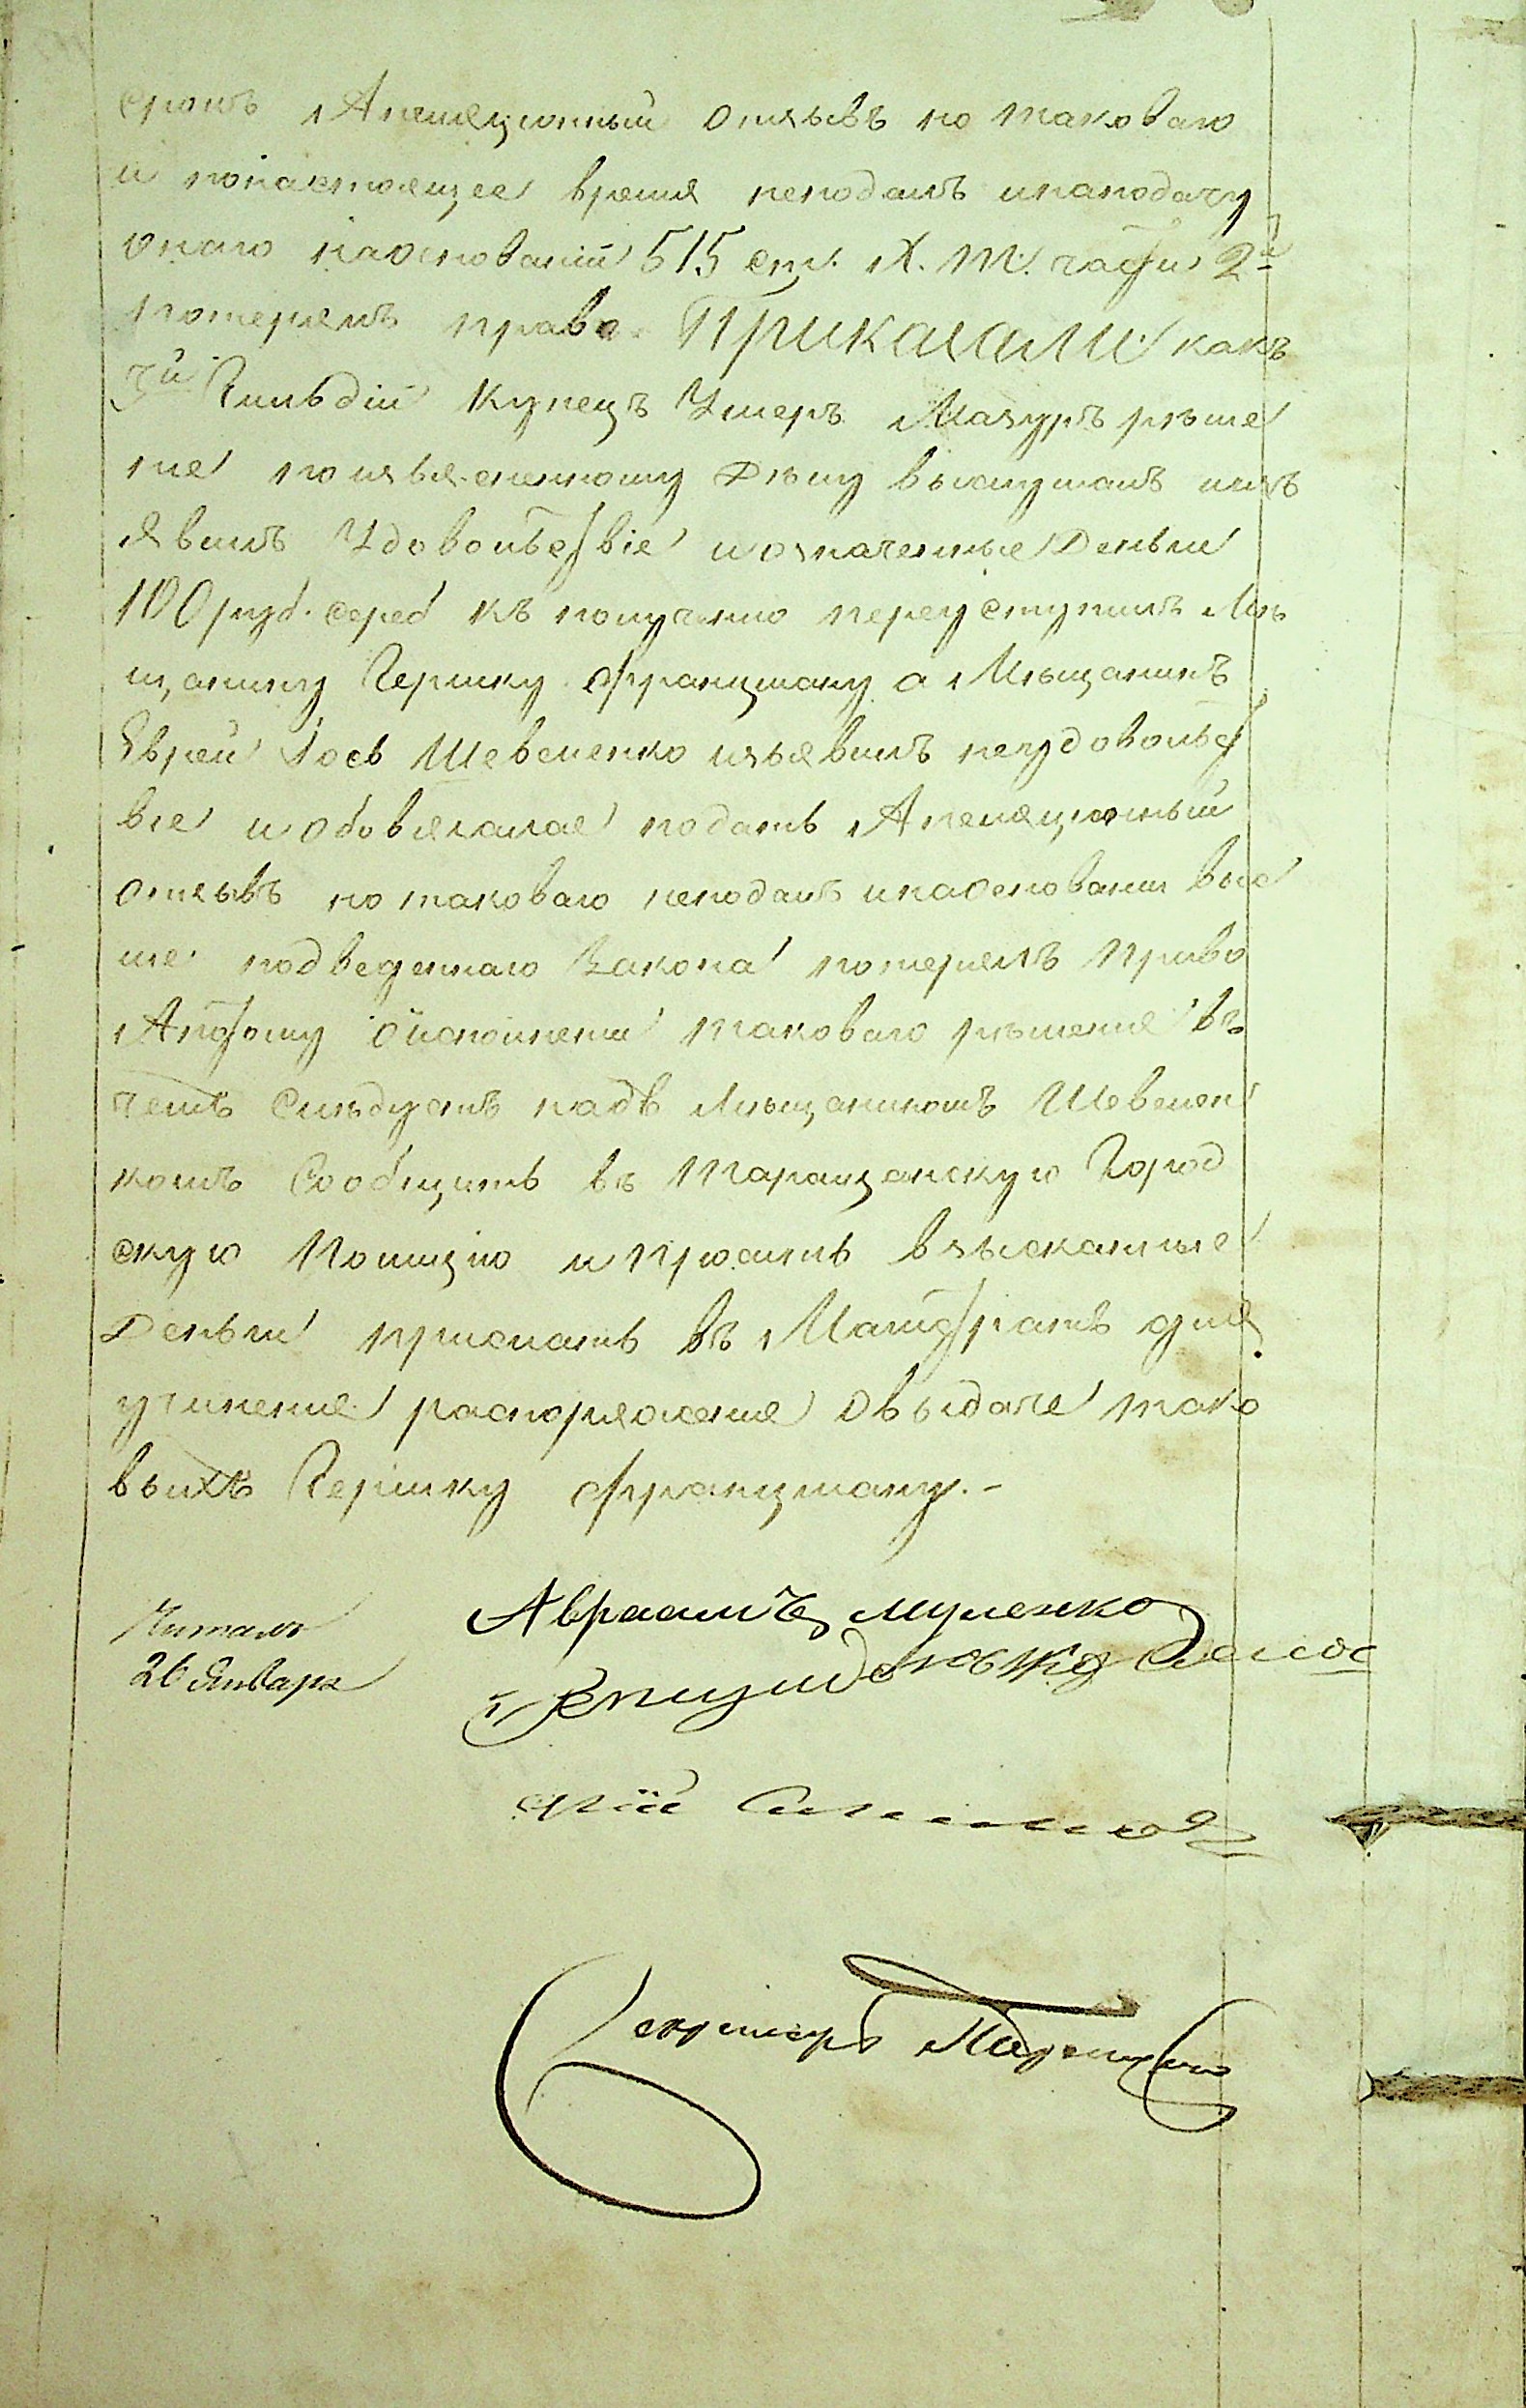 срокъ Апеляционный отзывъ но таковаго
и понастоящее время неподалъ инаподачу
онаго наосновании 515 ст. X. т. части 2й
потерялъ право. Приказали какъ
3й Гильдіи Купецъ Умеръ Мазуръ рѣше
ние поизъясненному Дѣлу выслушалъ изъ
явилъ Удовольствіе иозначенные Деньги
100 руб. сереб къ получению переуступилъ Мѣ
щанину Гершку Францману а Мѣщанинъ
Еврей Іось Шевеленко изъявилъ неудовольст
вие иобовязался подать Апеляционный
отзывъ но таковаго неподалъ инаосновании выс
ше подведеннаго Закона потерялъ право
Апотому оисполнении таковаго рѣшения въ
чемъ Слѣдуетъ надъ Мѣщаниномъ Шевелен
комъ Сообщить въ Таращанскую Город
скую Полицію ипросить взысканные
Деньги прислать въ Магистратъ для
учинения распоряжения овыдаче тако
выхъ Гершку Францману. -
Авраамъ Муленко
Читалъ
26 Января
Секретарь